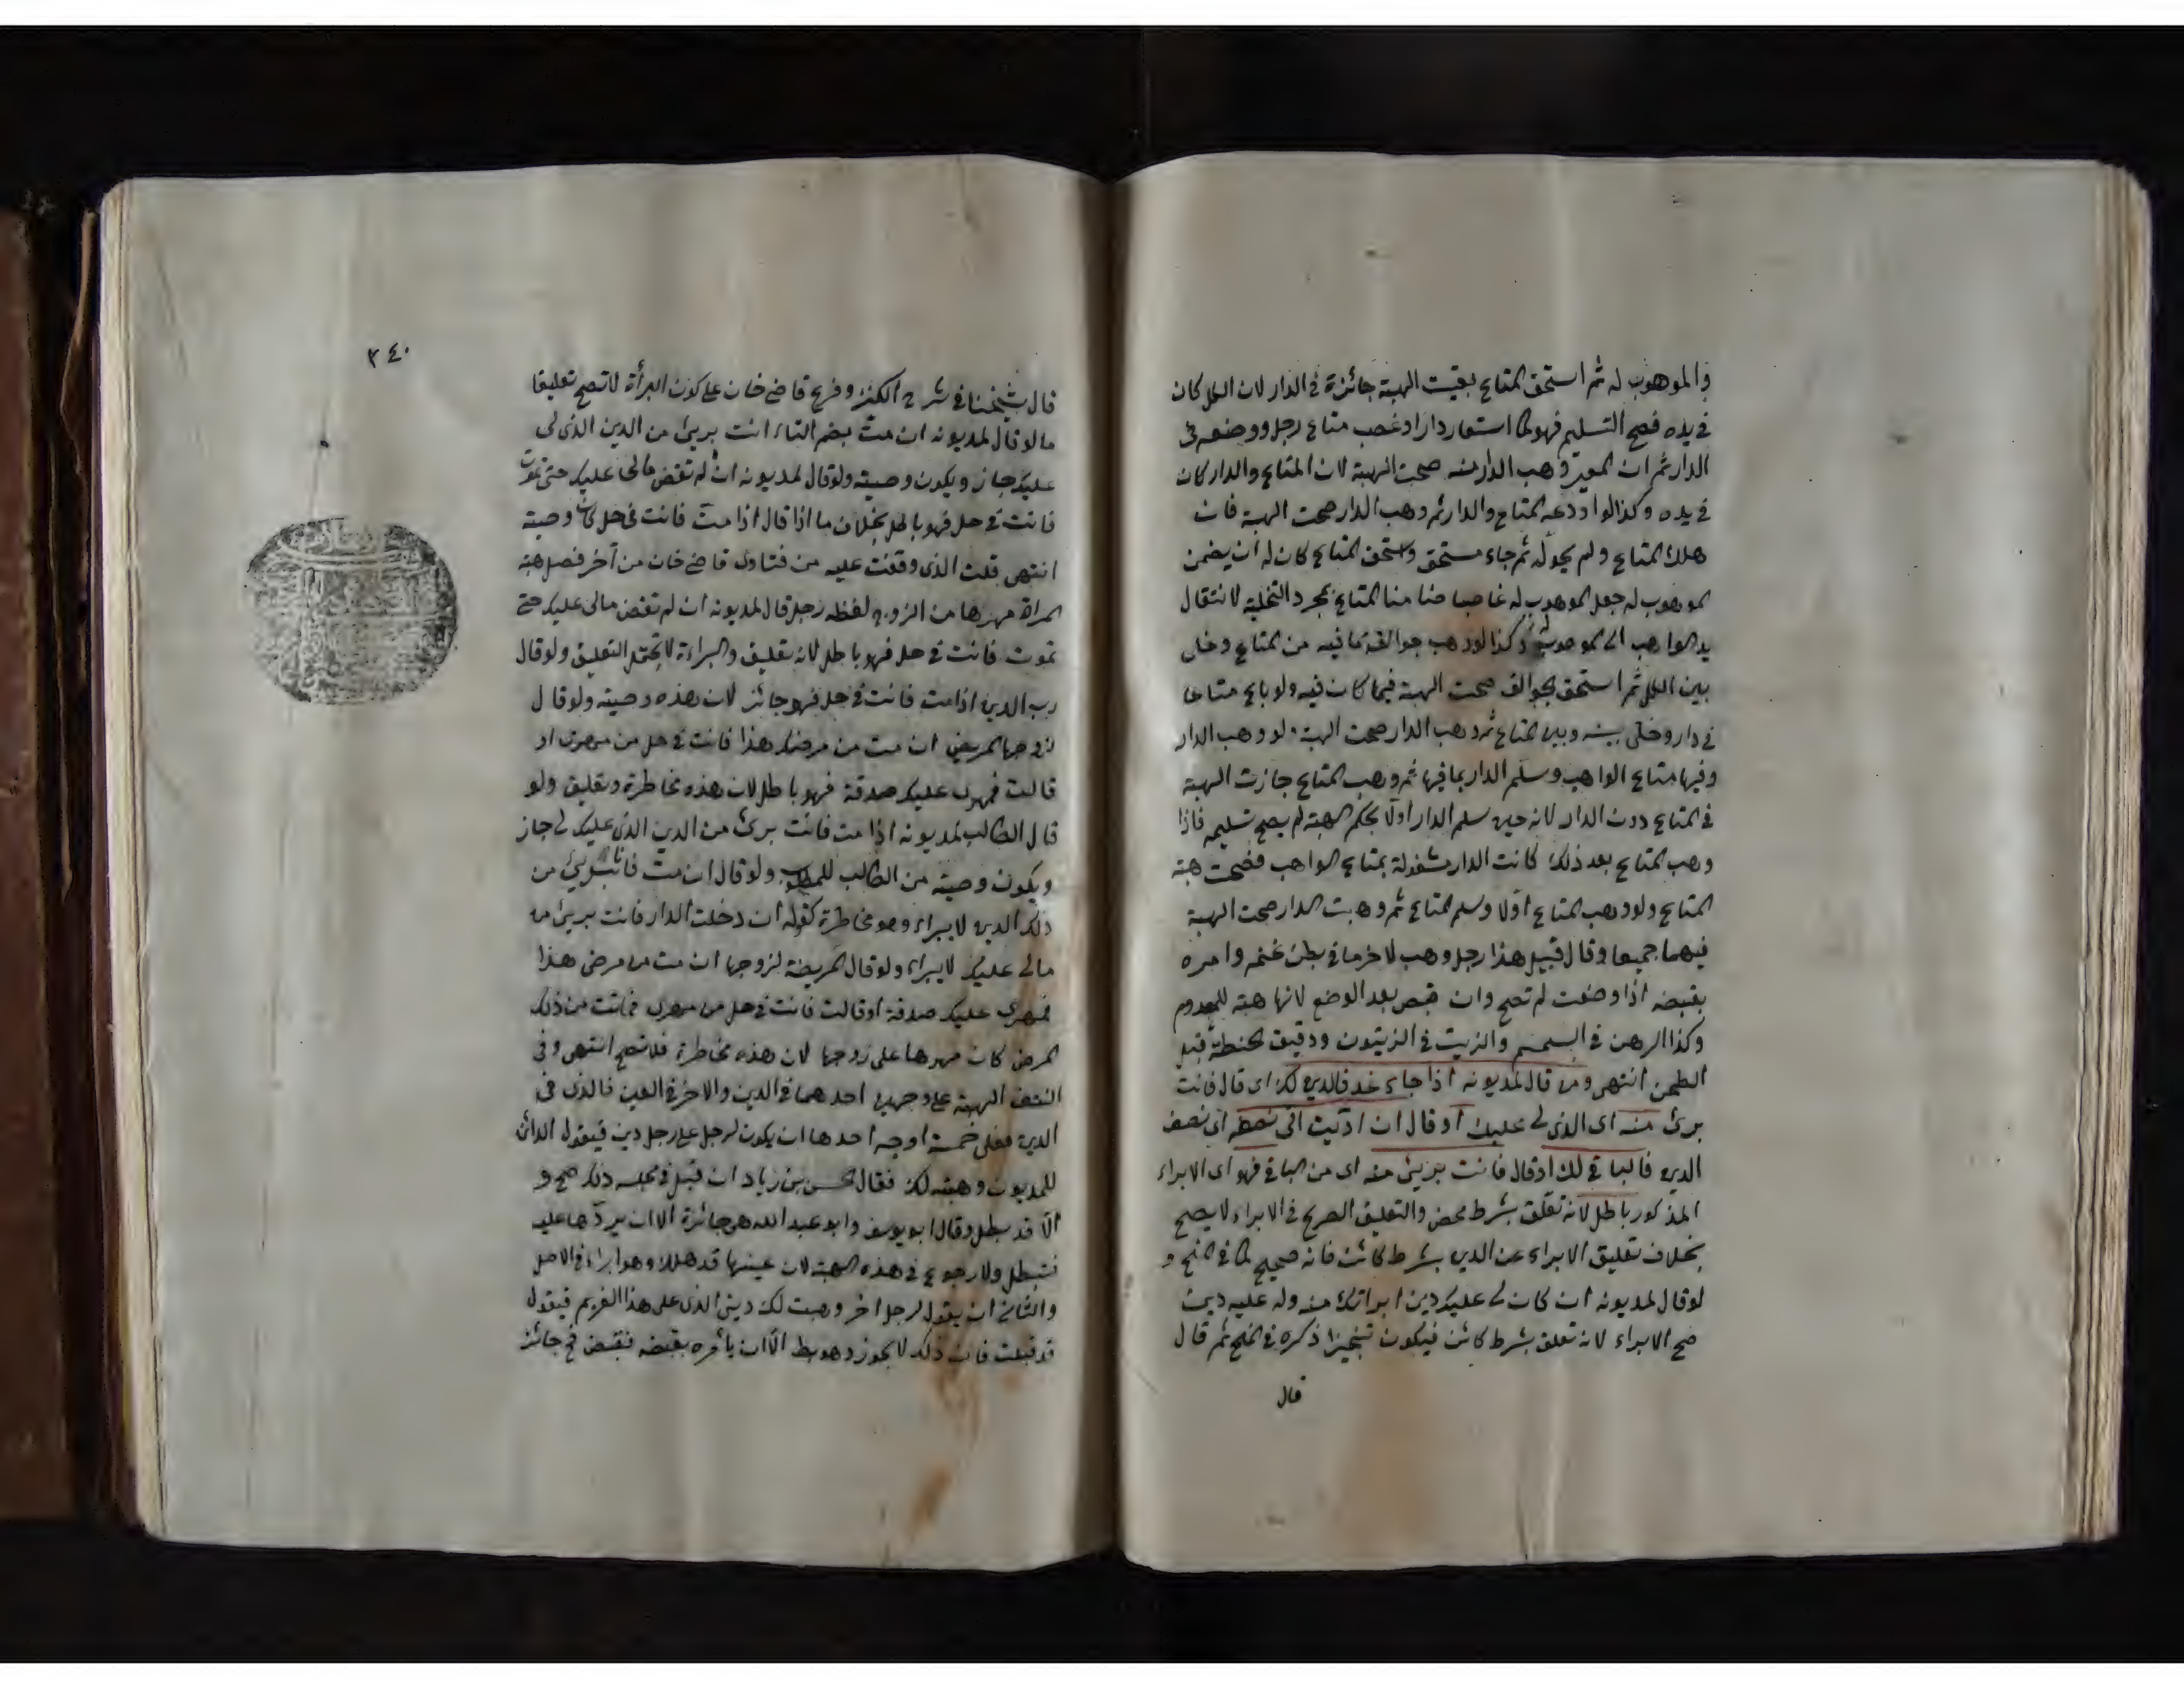 والموهوب له ثم استحق المتاع بقيت الهبة جائزة في الدار لان الكل كان
في يده فصح التسليم فهو كما استعار دارا او غصب متاع رجل ووضعه في
الدار ثم ان المعير وهب الدار منه صحت الهبة لان المتاع والدار كان
في يده وكذا لو اودعه المتاع والدار ثم وهب الدار صحت الهبة فان
هلك المتاع ولم يحوله ثم جاء مستحق واستحق المتاع كان له ان يضمن
الموهوب له جعل الموهوب له غاصبا ضامنا المتاع بمجرد التخلية لانتقال
يد الواهب الى الموهوب له وكذا لو وهب جوالق بما فيه من المتاع وخلى
بين الكل ثم استحق الجوالق صحت الهبة فيما كان فيه ولو باع متاعا
في دار وخلى بينه وبين المتاع ثم وهب الدار صحت الهبة ولو وهب الدار
وفيها متاع الواهب وسلم الدار بما فيها ثم وهب المتاع جازت الهبة
في المتاع دون الدار لانه حين سلم الدار اولا بحكم الهبة لم يصح تسليمه فاذا
وهب المتاع بعد ذلك كانت الدار مشغولة بمتاع الواهب فصحت هبة
المتاع ولو وهب المتاع اولا وسلم المتاع ثم وهبت الدار صحت الهبة
فيهما جميعا وقال قبيل هذا رجل وهب لاخر ما في بطن غنمه وامره
بقبضه اذا وضعت لم تصح وان قبض بعد الوضع لانها هبة للمعدوم
وكذا الرهن في السمسم والزيت في الزيتون ودقيق الحنطة قبل
الطحن انتهى ومن قال لمديونه اذا جاء غد فالدين لك اى قال فانت
برئ منه اى الذي لي عليك او قال ان اديت الى نصفه اى نصف
الدين فالباقي لك او قال فانت بريئ منه اى من الباقي فهو اى الابراء
المذكور باطل لانه تعلق بشرط محض والتعليق الصريح في الابراء لا يصح
بخلاف تعليق الابراء عن الدين بشرط كائن فانه صحيح لما في المنح و
لو قال لمديونه ان كان لي عليك دين ابراتك منه وله عليه دين
صح الابراء لانه تعلق بشرط كائن فيكون تنجيزا ذكره في المنح ثم قال
قال
٣٤٠
قال شيخنا في شرح الكنز وفرع قاضي خان على كون البرأة لا تصح تعليقا
ما لو قال لمديونه ان مت بضم التاء انت بريئ من الدين الذي لي
عليك جاز ويكون وصية ولو قال لمديونه ان لم تقض مالي عليك حتى تموت
فانت في حل فهو باطل بخلاف ما اذا قال اذا مت فانت في حل كان وصية
انتهى قلت الذي وقفت عليه من فتاوى قاضي خان من آخر فصل هبة
المراة مهرها من الزوج لفظه رجل قال لمديونه ان لم تقض مالي عليك حتى
تموت فانت في حل فهو باطل لانه تعليق والبراءة لا يحتمل التعليق ولو قال
رب الدين اذا مت فانت في حل فهو جائز لان هذه وصية ولو قال
لزوجها المريض ان مت من مرضك هذا فانت في حل من مهرى او
قالت فمهرى عليك صدقة فهو باطل لان هذه مخاطرة وتعليق ولو
قال الطالب لمديونه اذا مت فانت برئ من الدين الذي عليك لي جاز
ويكون وصية من الطالب للمطلوب ولو قال ان مت فانت بريئ من
ذلك الدين لا يبراء وهو مخاطرة كقوله ان دخلت الدار فانت بريئ من
مالي عليك لا يبراء ولو قال المريضة لزوجها ان مت من مرضى هذا
فمهرى عليك صدقة او قالت فانت في حل من مهرى فماتت من ذلك
المرض كان مهرها على زوجها لان هذه مخاطرة فلا تصح انتهى وفي
النتف الهبة على وجهين احدهما في الدين والاخر في العين فالذي في
الدين فعلى خمسة اوجه احدها ان يكون لرجل على رجل دين فيقول الدائن
للمديون وهبته لك فقال الحسن بن زياد ان قبل في مجلسه ذلك صح و
الا قد بطل وقال ابو يوسف وابو عبد الله هى جائزة الا ان يردها عليه
فتبطل ولا رجوع في هذه الهبة لان عينها قد هلك وهو ابراء في الاصل
والثاني ان يقول لرجل اخر وهبت لك ديني الذي على هذا الغريم فيقول
قد قبلت فان ذلك لا يجوز وهو بط الا ان يأمره بقبضه فقبض فح جائز